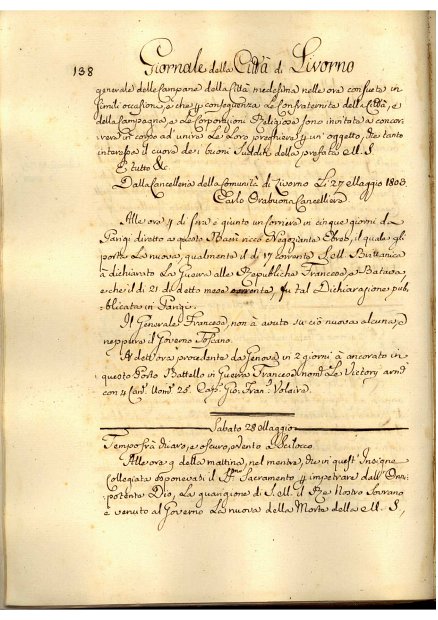 138 Giornale della Città di Livorno
generale delle Campane della Città medesima nelle ore consuete in
simili occasioni, e che p conseguenza le Confraternite della Città, e
della Campagna, e le Corporazioni Religiose sono invitate a concor-
rere in corpo ad unire le loro preghiere p un' oggetto, che tanto
interessa il cuore de i buoni Sudditi della prefata M. S.
E tutto &c.
Dalla Cancelleria della Comunità di Livorno Li 27 Maggio 1803.
Carlo Orabuona Cancelliere
Alle ore 4 di sera è giunto un Corriere in cinque giorni da
Parigi diretto a questo Busnì ricco Negoziante Ebreo, il quale gli
portò la nuova, qualmente il dì 17 Corrente S. M. Brittanica
à dichiarato la Guerra alle Republiche Francese, e Batava,
e che il dì 21 di detto mese fu tal Dichiarazione pub-
blicata in Parigi.
Il Generale Francese, non à avuto su ciò nuova alcuna, e
neppure il Governo Toscano.
A dett'ora procedente da Genova in 2 giorni à ancorato in
questo Porto Battello in Guerra Francese nom.o Le Victory arm.o
con 4 Can.i Uom.i 25. Cap.o Gio: Fran.o Volaire.
Sabato 28 Maggio
Tempo frà chiaro, e oscuro, e Vento a Scilocco.
Alle ore 9 della mattina, nel mentre, che in quest' Insigne
Collegiata esponevasi il SS.mo Sacramento p impetrare dall' Onni-
potente Dio, la guarigione di S. M. il Re Nostro Sovrano
è venuto al Governo la nuova della Morte della M. S.,